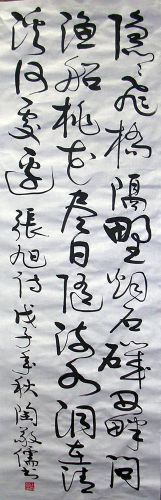 隐〻飛橋隔野烟石磯西畔問
漁船桃花盡日隨流水洞在清
溪何處邊 張旭詩 戊子年秋陶敬儒書